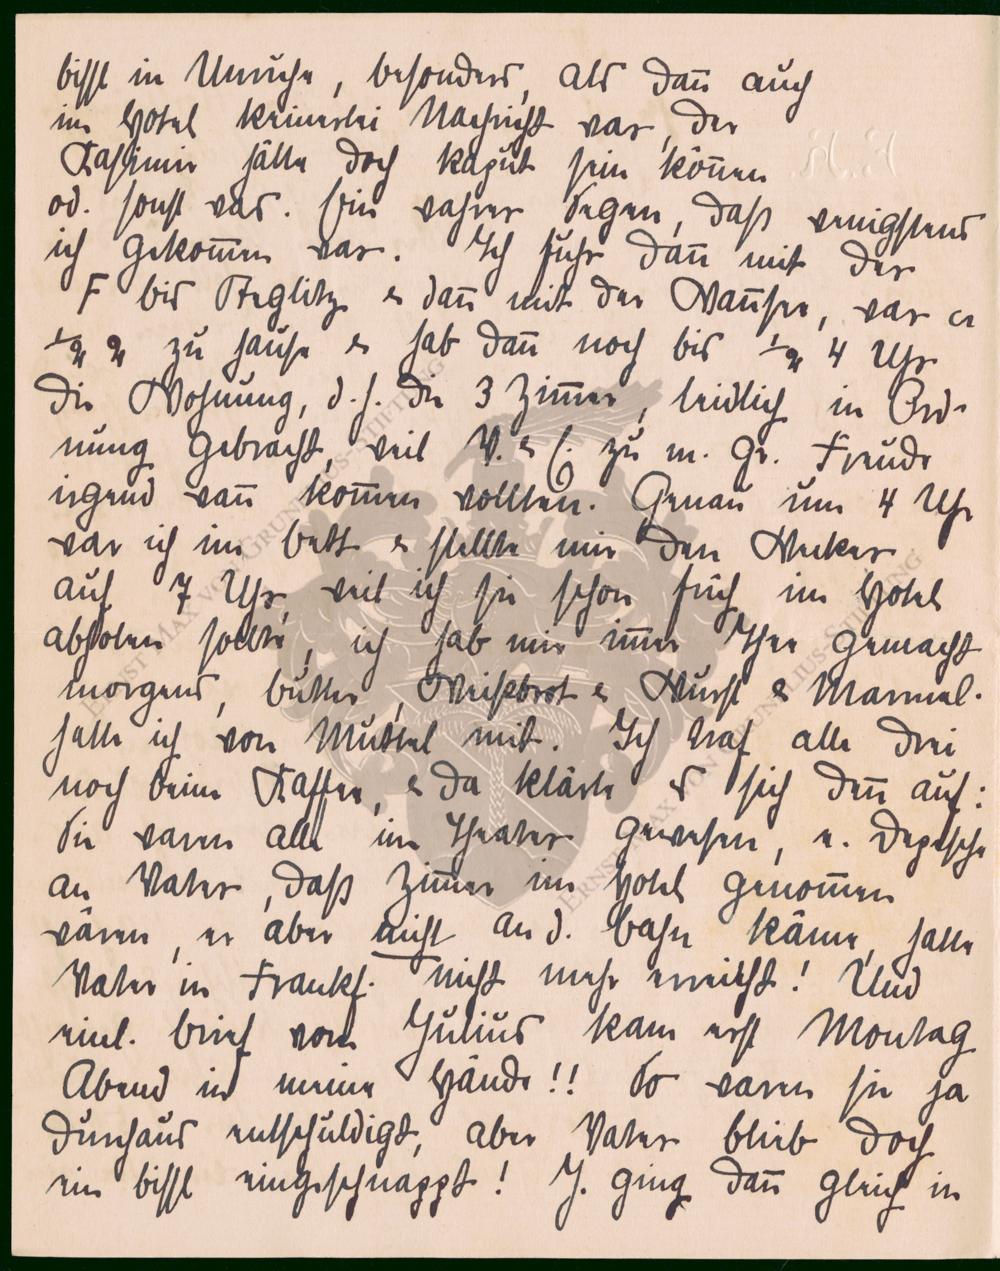 bissl in Unruhe, besonders, als dan̅ auch
im Hotel keinerlei Nachricht war, der
Kasimir hätte doch kaput sein kön̅en
od. sonst was. Ein wahrer Segen, daß wenigstens
ich gekom̅en war. Ich fuhr dan̅ mit der
F bis Steglitz & dan̅ mit der Wan̅see, war ca
½ 2 zu hause & hab dan̅ noch bis ½ 4 Uhr
die Wohnung, d.h. die 3 Zim̅er, leidlich in Ord-
nung gebracht, weil V. & E. zu m. gr. Freude
irgend wan̅ kom̅en wollten. Genau um 4 Uhr
war ich im bett & stellte mir den Wecker
auf 7 Uhr, weil ich sie schon früh im Hotel
abholen sollte, ich hab mir im̅er Thee gemacht
morgens, butter, Weißbrot & Wurst & Marmel.
hatte ich von Muttel mit. Ich traf alle drei
noch beim Kaffee, & da klärte es sich den̅ auf:
Sie waren alle im Theater gewesen, e. Depesche
an Vater, daß Zim̅er im Hotel genom̅en
wären, er aber nicht an d. bahn käme, hatte
Vater in Frankf. nicht mehr erreicht! Und
einl. brief von Julius kam erst Montag
Abend in meine Hände!! So waren sie ja
durchaus entschuldigt, aber Vater blieb doch
ein bissl eingeschnappt! J. ging dan̅ gleich in
ERNST MAX VON GRUNELIUS-STIFTUNG
ERNST MAX VON GRUNELIUS-STIFTUNG